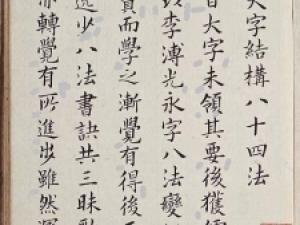 大字結構八十四法
昔大字未領其要後獲
李溥光永字八法變
而學之漸覺有得後
少八法書訣共三昧歌
轉覺有所進步雖然